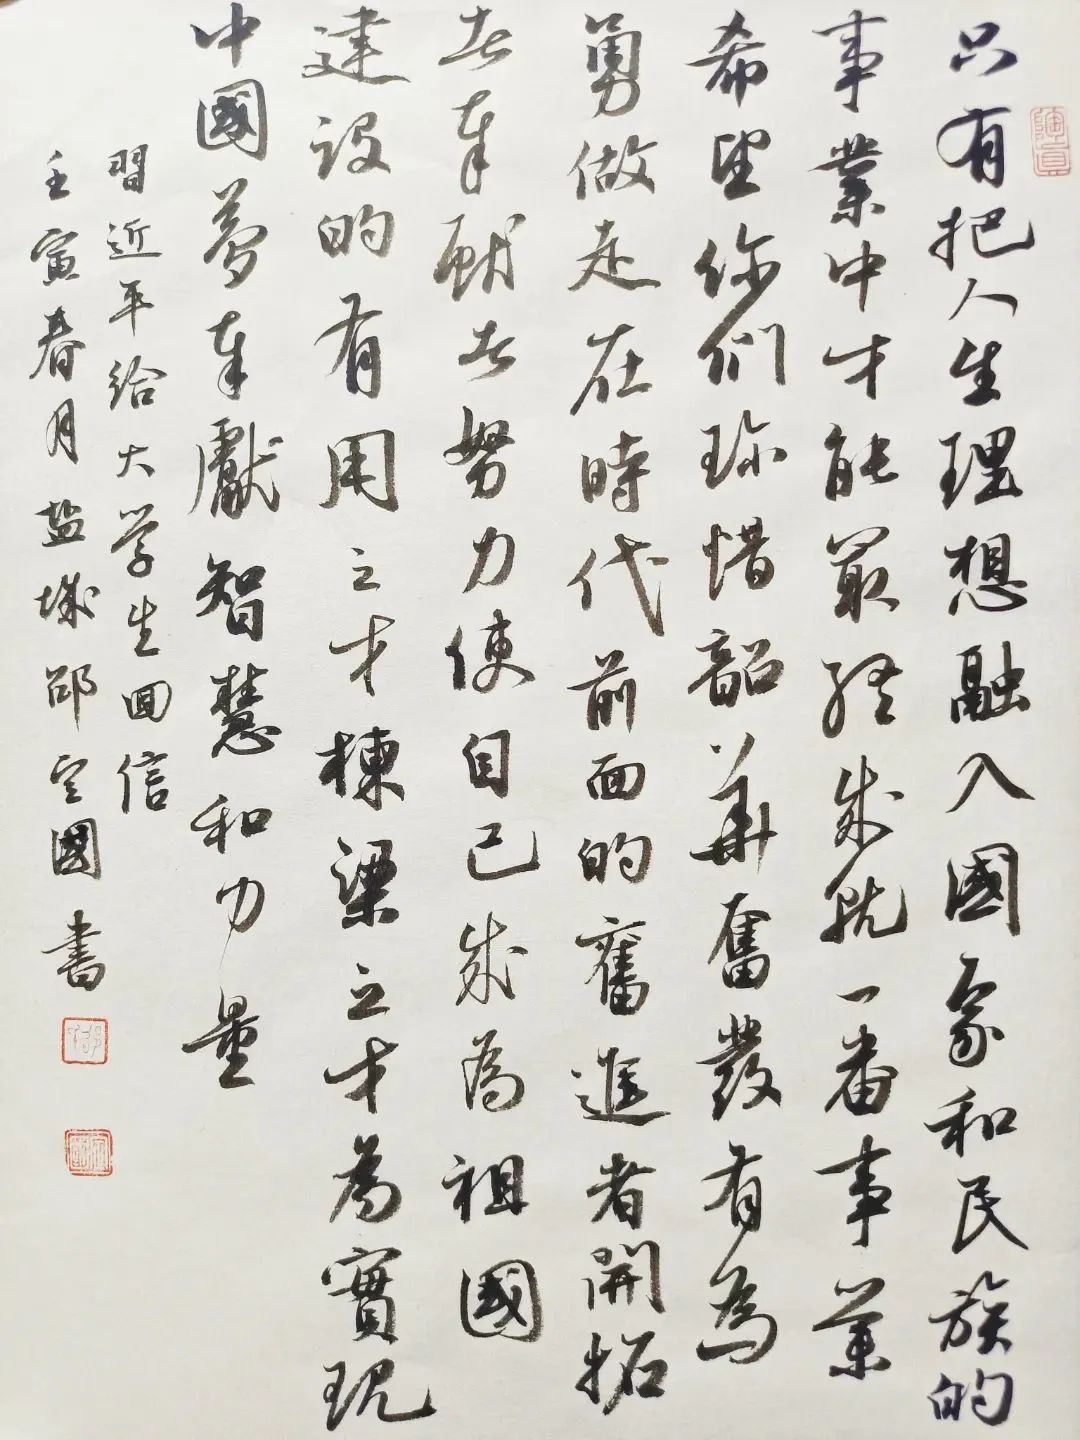 只有把人生理想融入國家和民族的
事業中才能最終成就一番事業
希望你們珍惜韶華奮發有為
勇做走在時代前面的奮進者開拓
者奉獻者努力使自己成為祖國
建設的有用之才棟梁之才為實現
中國夢奉獻智慧和力量
習近平給大学生回信
壬寅春月盐城邵定國書